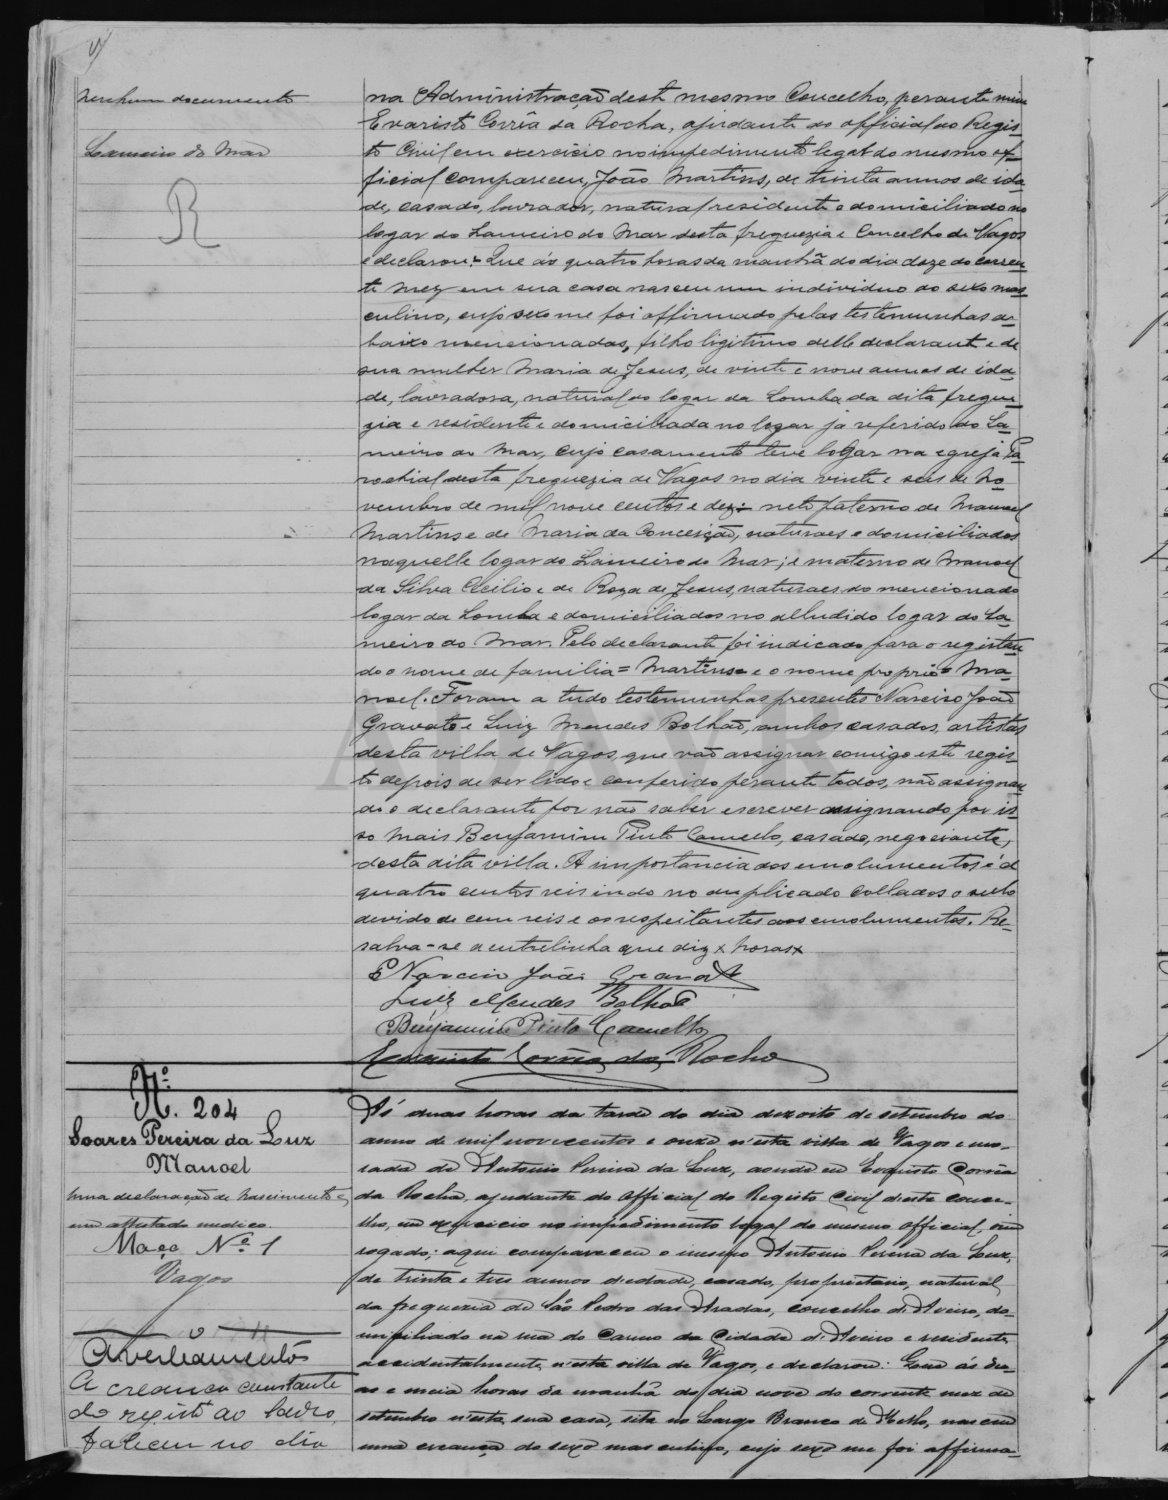 Nenhum documento
Lameiro do Mar
R
na Administração deste mesmo Concelho, perante mim
Evaristo Corrêa da Rocha, ajudante do official do Regis-
to Civil em exercicio no impedimento legal do mesmo of-
ficial compareceu, João Martins, de trinta annos de ida-
de, casado, lavrador, natural residente e domiciliado no
logar do Lameiro do Mar desta freguezia e Concelho de Vagos
e declarou: Que ás quatro horas da manhã do dia doze do corren-
te mez em sua casa nasceu um individuo do sexo mas-
culino, cujo sexo me foi affirmado pelas testemunhas a-
baixo mencionadas, filho ligitimo delle declarante e de
sua mulher Maria de Jesus, de vinte e nove annos de ida-
de, lavradora, natural do logar da Lomba da dita fregue-
zia e residente e domiciliada no logar já referido do La-
meiro do Mar, cujo casamento teve logar na egreja Pa-
rochial desta freguezia de Vagos no dia vinte e seis de No-
vembro de mil nove centos e dez: neto paterno de Manuel
Martins e de Maria da Conceição, naturaes e domiciliados
naquelle logar do Lameiro do Mar; e materno de Manoel
da Silva Cecilio e de Roza de Jesus, naturaes do mencionado
logar da Lomba e domiciliados no alludido logar do La-
meiro do Mar. Pelo declarante foi indicado para o registan-
do o nome de familia = Martins = e o nome proprio = Ma-
noel. Foram a tudo testemunhas presentes Narciso João
Gravato e Luiz Mendes Bolhão, ambos casados, artistas
desta villa de Vagos, que vão assignar comigo este regis-
to depois de ser lido e conferido perante todos, não assignan-
do o declarante por não saber escrever assignando por is-
so mais Benjamim Pinto Camello, casado, negociante,
desta dita villa. A importancia dos emolumentos é de
quatro centos reis indo no duplicado collados o sello
devido de cem reis e os respeitantes aos emolumentos. Re-
salva-se a entrelinha que diz x horas x
Narciso João Gravato
Luiz Mendes Bolhão
Benjamim Pinto Camello
Evaristo Corrêa da Rocha
Nº. 204
Soares Pereira da Luz
Manoel
Uma declaração de nascimento e
um attestado medico.
Maço Nº 1
Vagos
Averbamentos
A creança constante
do registo ao lado,
faleceu no dia
Ás duas horas da tarde do dia dezoito de setembro do
anno de mil novecentos e onze n'esta villa de Vagos e mo-
rada de Antonio Pereira da Luz, aonde eu Evaristo Corrêa
da Rocha, ajudante do official do Registo Civil deste conce-
lho, em exercicio no impedimento legal do mesmo official, vim
rogado; aqui compareceu o mesmo Antonio Pereira da Luz,
de trinta e tres annos d'edade, casado, proprietario, natural
da freguezia de São Pedro das Aradas, concelho d'Aveiro, do-
miciliado na rua do Carmo da Cidade d'Aveiro e residente
accidentalmente n'esta villa de Vagos, e declarou: Que ás du-
as e meia horas da manhã do dia nove do corrente mez de
setembro n'esta sua casa, sita no Largo Branco de Mello, nasceu
uma creança do sexo masculino, cujo sexo me foi affirma-